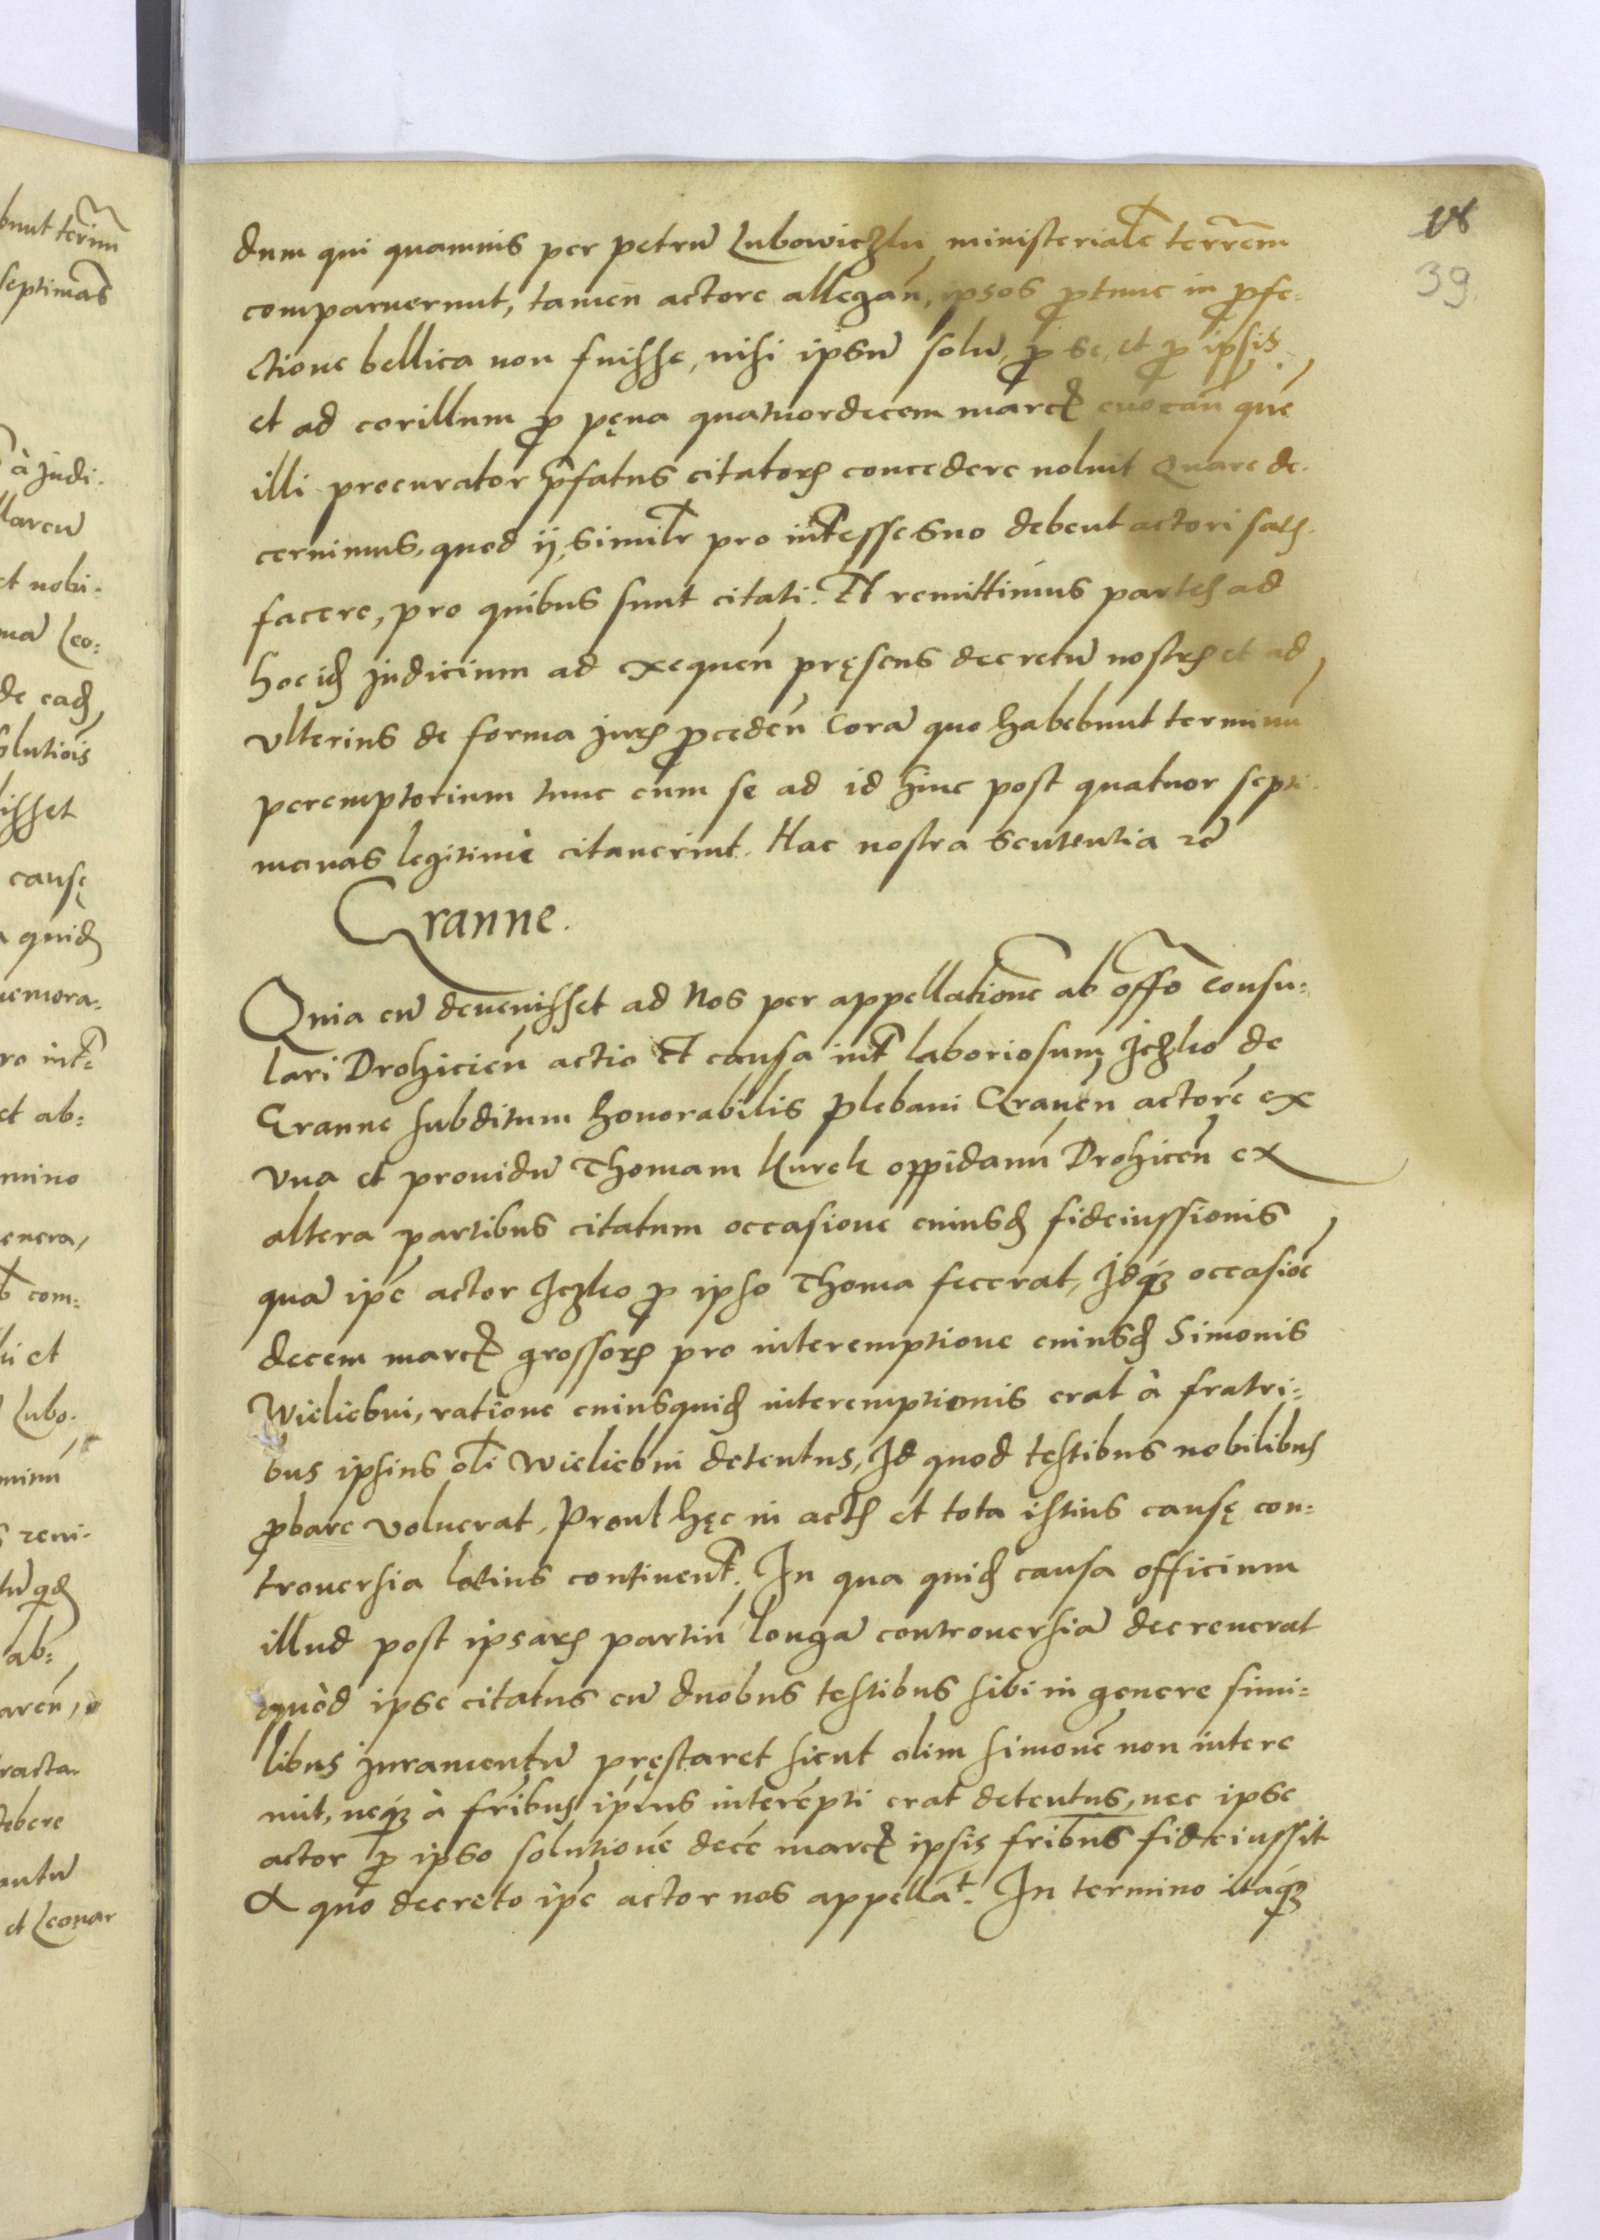 18
39
dum qui quamuis per petrū Lubowiczki, ministerialē terrēm
comparuerunt, tamen actore allegań, ipsos ꝓtunc in ꝓfe-
ctione bellica non fuisse, nisi ipsū solū, ꝓ se, et ꝓ ipsis
et ad corillum ꝓ pęna quatuordecem marcꝭ euocań quē
illi procurator p̄fatus citatorꝫ concedere noluit Quare de-
cernimus, quod ij, similr̄ pro int̄esse suo debent actori satꝭ-
facere, pro quibus sunt citati. Et remittimus partes ad
hoc idꝫ judicium ad exequeń pręsens decretū nostrꝫ et ad
vlterius de forma jurꝭ ꝓcedeń Corā quo habebunt terminū
peremptorium tunc cum se ad id hinc post quatuor septi-
manas legitimè citauerint. Hac nostra sententia &c
Granne.
Quia cū deuenisset ad Nos per appellationē ab offō Consu-
lari Drohicień actio Et causa int̄ laboriosum Iczko de
Granne subditum honorabilis plebani Graneń actorē ex
vna et prouidū Thomam Kurek oppidanū Drohiceń ex
altera partibus citatum occasione cuiusdꝫ fideiussionis
quā ipē actor Iczko ꝓ ipso Thoma fecerat, Idqꝫ occasioē
decem marcꝭ grossorꝫ pro interemptione cuiusdꝫ Simonis
Wieliebni, ratione cuiusquidꝫ interemptionis erat à fratri-
bus ipsius olī Wieliebni detentus, Id quod testibus nobilibus
ꝓbare voluerat, Prout hęc in actꝭ et tota istius causę con-
trouersia latius continent̄. In qua quidꝫ causa officium
illud post ipsarꝫ partiū longā controuersiā decreuerat
quòd ipse citatus cū duobus testibus sibi in genere simi-
libus juramentū pręstaret sicut olim simonē non intere
mit, neqꝫ à frībus ipīus interēpti erat detentus, nec ipse
actor ꝓ ipso solutionē decē marcꝭ ipsis frībus fideiussit
A quo decreto ipē actor nos appellāt. In termino itáqꝫ